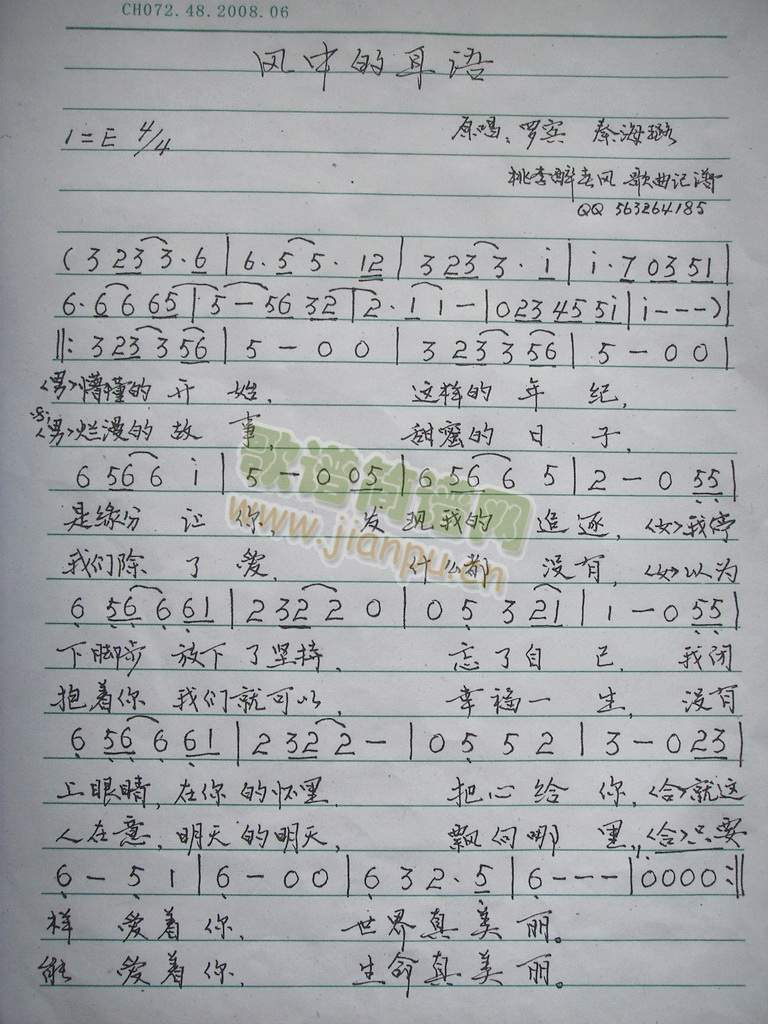 CH072.48.2008.06
风中的耳语
1=E 4/4 原唱:罗宾 秦海璐
桃李醉春风 歌曲记谱
QQ 563264185
(3 23 3·6 | 6·5 5·12 | 3 23 3·i | i·7 0351 |
6·6 6 65 | 5 - 56 32 | 2·1 1 - | 023 45 5i | i - - -)|
‖: 3 23 3 56 | 5 - 0 0 | 3 23 3 56 | 5 - 0 0 |
<男>懵懂的 开 始, 这样的 年 纪,
<男>烂漫的 故 事, 甜蜜的 日 子,
6 56 6 i | 5 - 0 05 | 6 56 6 5 | 2 - 0 55 |
是缘份 让 你, 发 现我的 追 逐, <女>我停
我们除 了 爱, 什么都 没 有, <女>以为
6 56 6 61 | 2 32 2 0 | 0 5 3 21 | 1 - 0 55 |
下脚步 放下了坚持, 忘了自 己, 我闭
抱着你 我们就可以, 幸福一 生, 没有
6 56 6 61 | 2 32 2 - | 0 5 5 2 | 3 - 0 23 |
上眼睛, 在你的怀里, 把心给 你, <合>就这
人在意, 明天的明天, 飘向哪 里, <合>只要
6 - 5 1 | 6 - 0 0 | 6 3 2·5 | 6 - - - | 0000 :‖
样 爱着你, 世界真美 丽。
能 爱着你, 生命真美 丽。
歌谱简谱网
www.jianpu.cn